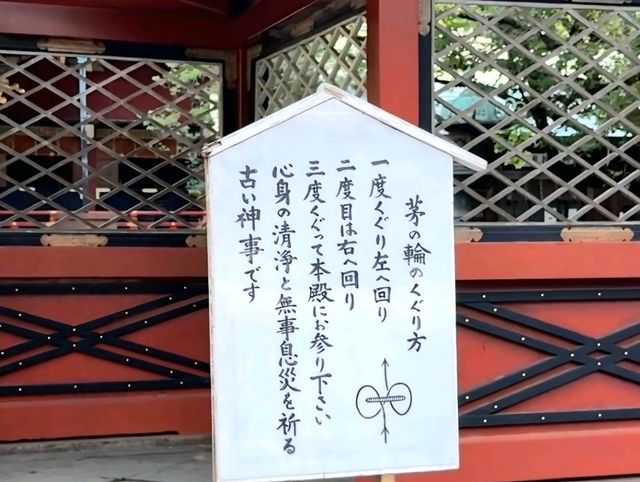 茅の輪のくぐり方
一度くぐり左へ回り
二度目は右へ回り
三度くぐって本殿にお参り下さい
心身の清浄と無事息災を祈る
古い神事です